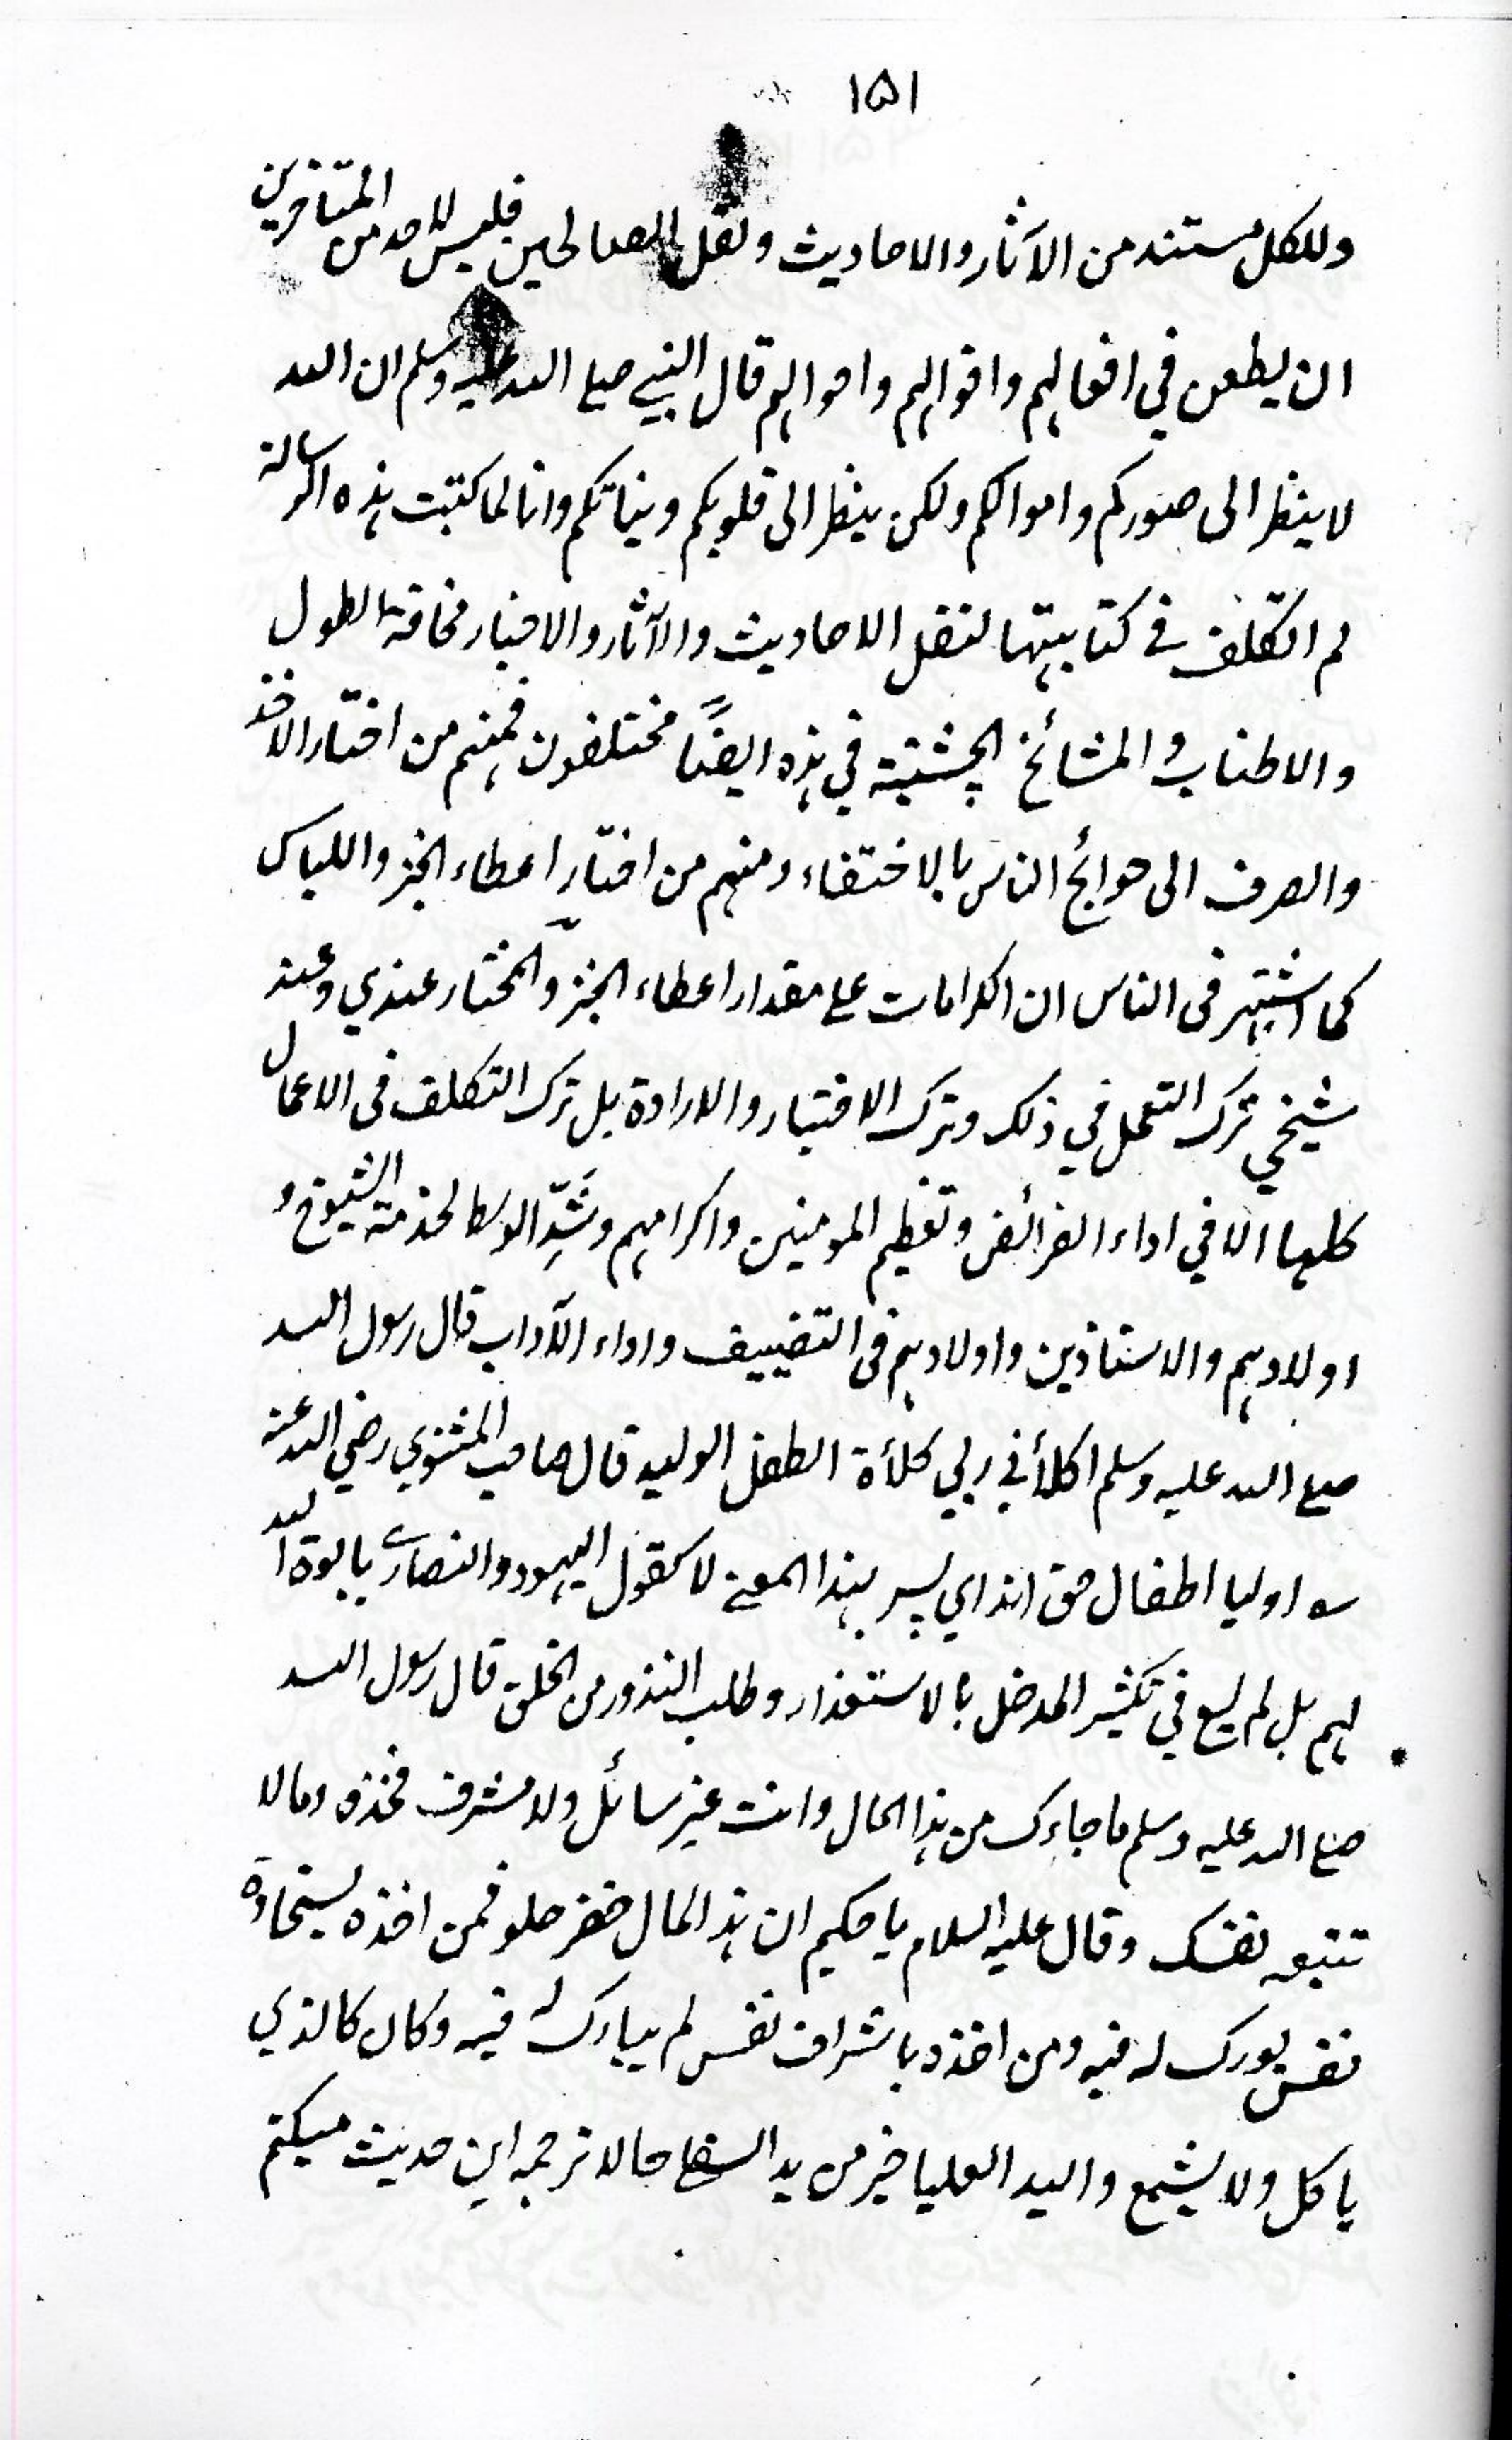 ۱۵۱
وللکل مستند من الآثار والاحادیث ونقل الصالحین فلیس لاحد من المتاخرین
ان یطعن فی افعالہم واقوالہم واحوالہم قال النبی صلی اللہ علیہ وسلم ان اللہ
لا ینظر الی صورکم واموالکم ولکن ینظر الی قلوبکم ونیاتکم وانا لما کتبت ہذہ الرسالة
لم اتکلف فی کتابیتہا لنقل الاحادیث والآثار والاخبار مخافة الطول
والاطناب والمشائخ الچشتیة فی ہذہ ایضًا مختلفون فمنہم من اختار الاخذ
والصرف الی حوائج الناس بالاختفاء ومنہم من اختار اعطاء الخبز واللباس
کما اشتہر فی الناس ان الکرامات علی مقدار اعطاء الخبز والمختار عندی وعند
شیخی ترک التعمل فی ذلک وترک الاختیار والارادة بل ترک التکلف فی الاعمال
کلہا الا فی اداء الفرائض وتعظیم المومنین واکرامہم وشَدِّ الوسط لخدمة الشیوخ و
اولادہم والاستاذین واولادہم فی التضییف واداء الآداب قال رسول اللہ
صلی اللہ علیہ وسلم اکلأنی ربی کلأة الطفل الولید قال صاحب المثنوی رضی اللہ عنہ
؎ اولیا اطفال حق اند ای پسر بہذا المعنی لا کقول الیہود والنصاری بابوة اللہ
لہم بل لم یسع فی تکثیر المدخل بالاستعذار وطلب النذور من الخلق قال رسول اللہ
صلی اللہ علیہ وسلم ما جاءک من ہذا المال وانت غیر سائل ولا مشرف فخذہ وما لا
تتبعہ نفسک وقال علیہ السلام یا حکیم ان ہذا المال خضر حلو فمن اخذہ بسخاوة
نفس بورک لہ فیہ ومن اخذہ باشراف نفس لم یبارک لہ فیہ وکان کالذی
یاکل ولا یشبع والید العلیا خیر من ید السفلی حالا ترجمہ این حدیث میکنم